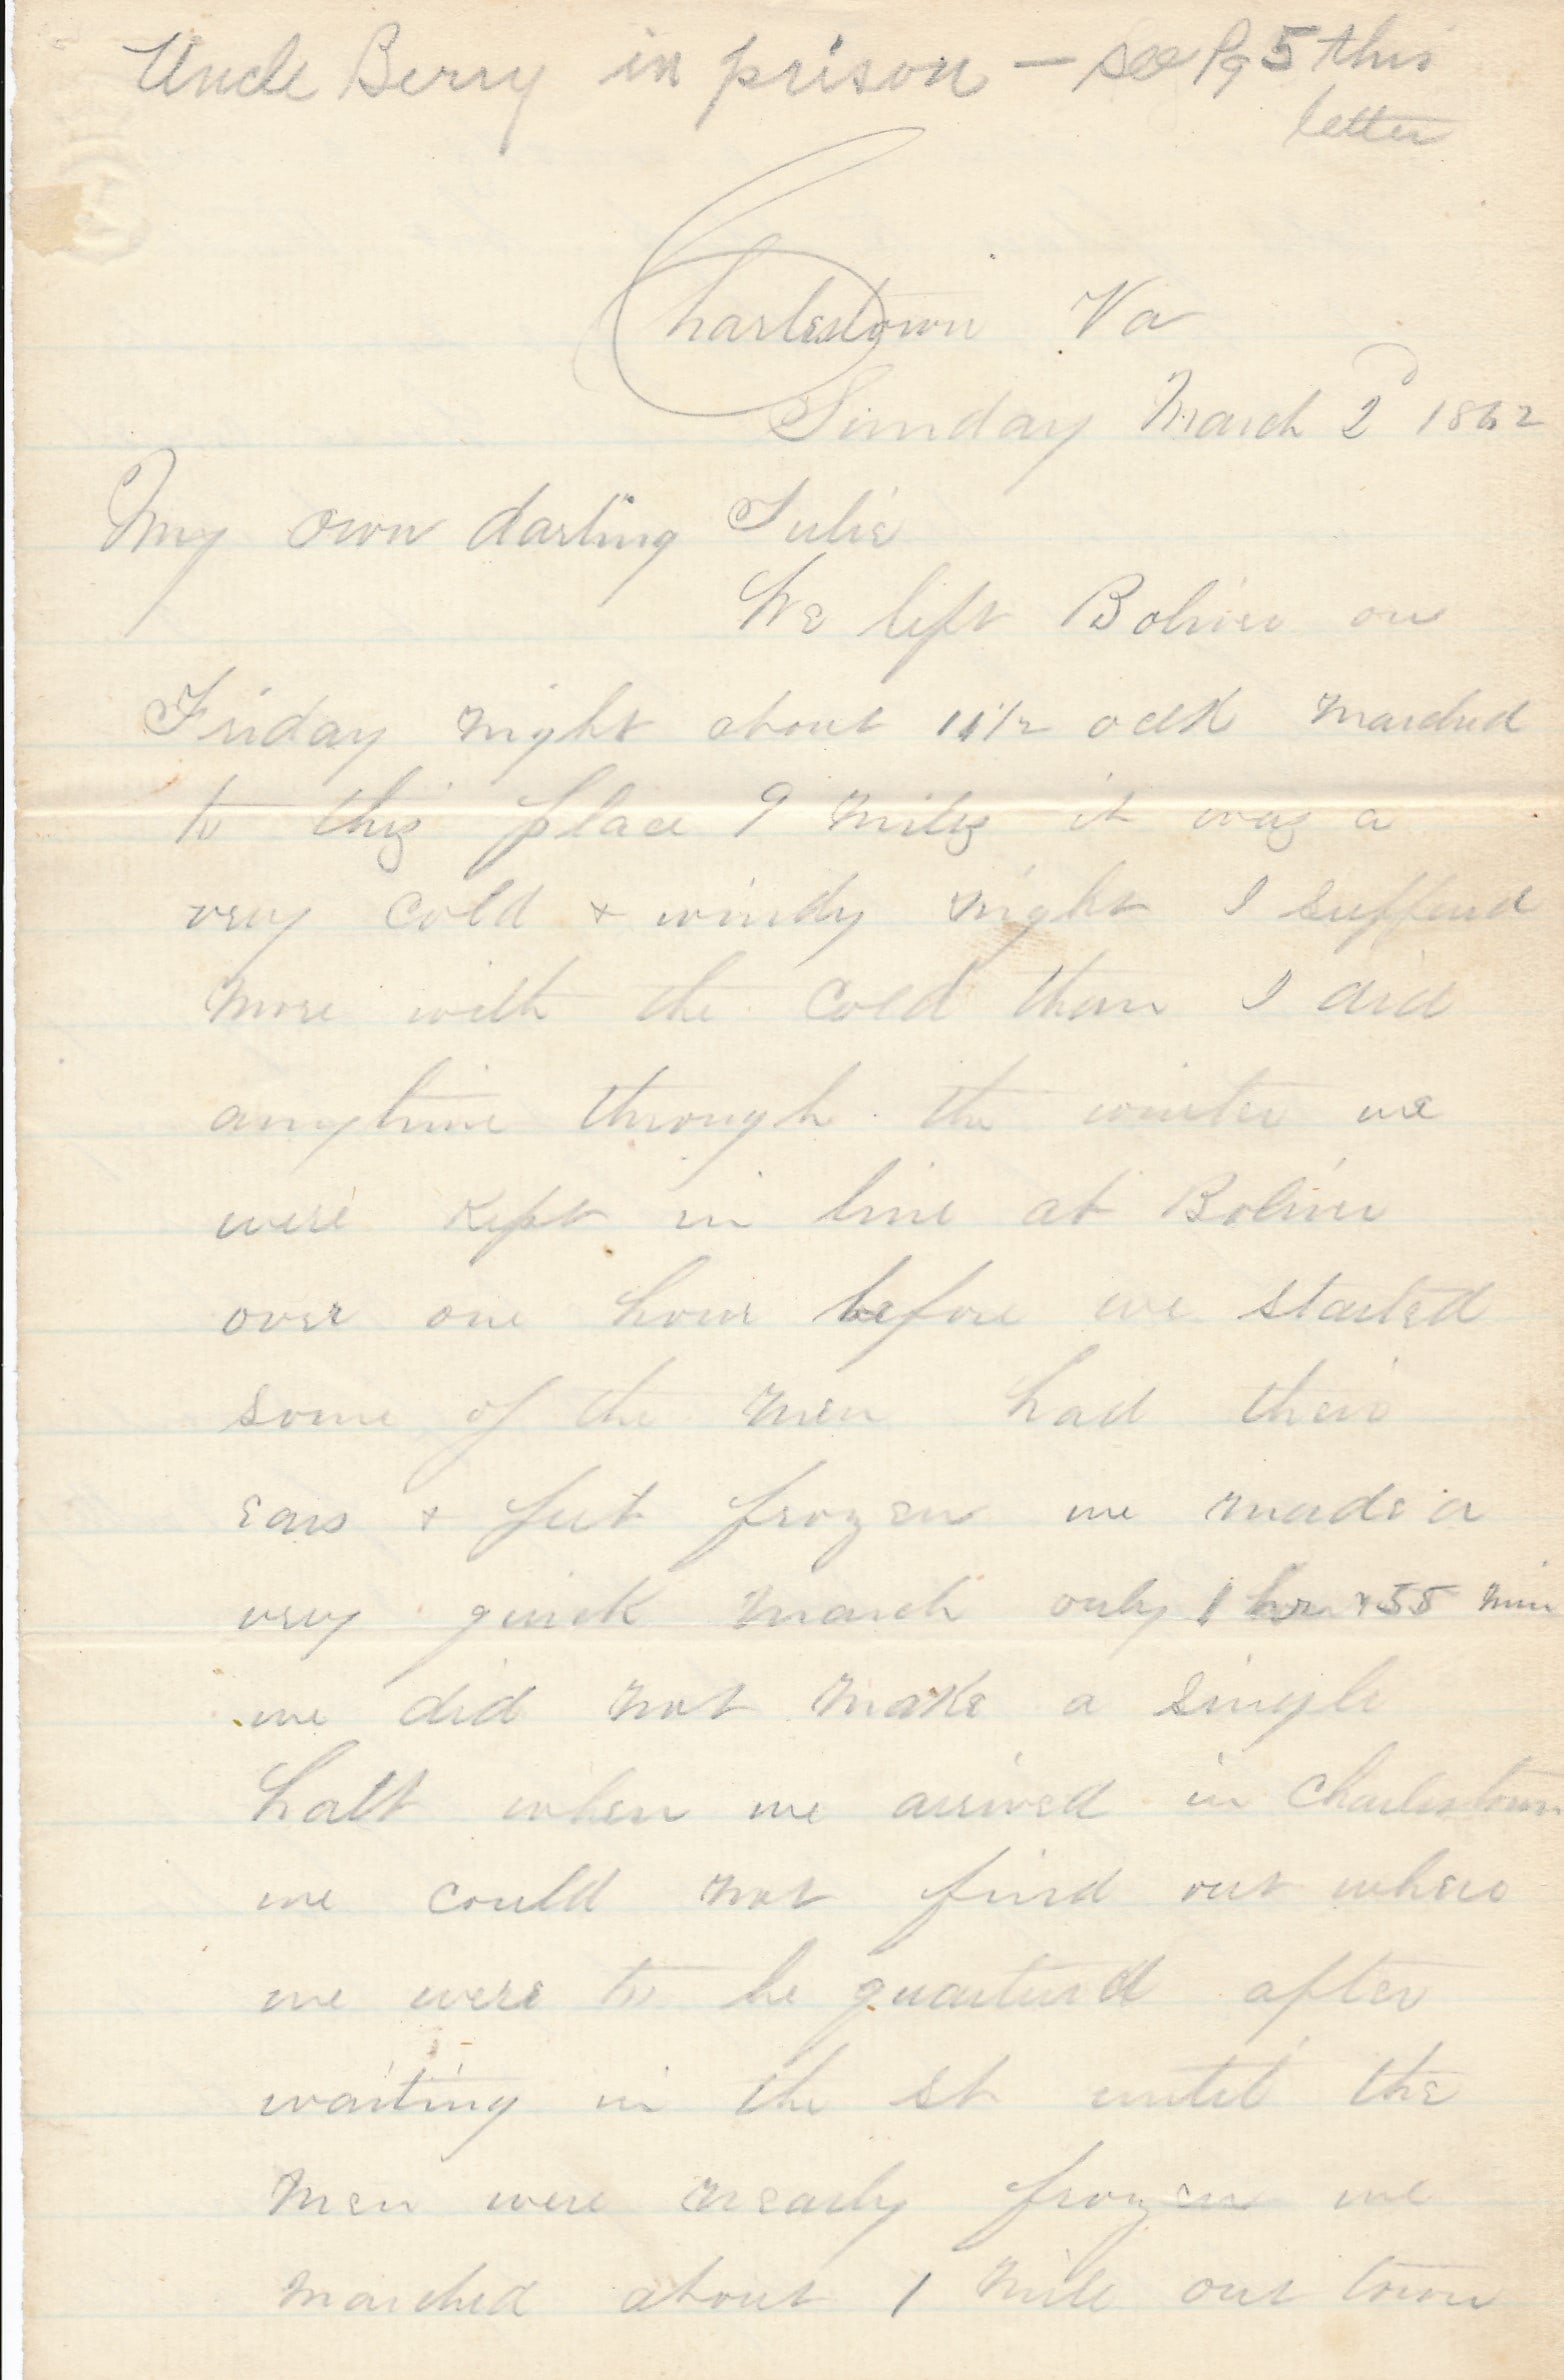 Uncle Berry in prison — See Pg 5 this
letter
Charlestown Va
Sunday March 2d 1862
My own darling Julie
We left Boliver on
Friday night about 11 1/2 oclk marched
to this place 9 miles it was a
very cold & windy night I sufferd
more with the cold than I did
anytime through the winter we
were kept in line at Boliver
over one hour before we started
some of the men had their
ears & feet frozen we made a
very quick march only 1 hr & 55 min
we did not make a single
halt when we arrived in Charlestown
we could not find out where
we were to be quarturd after
waiting in the st until the
men were nearly frozen we
marched about 1 mile out town